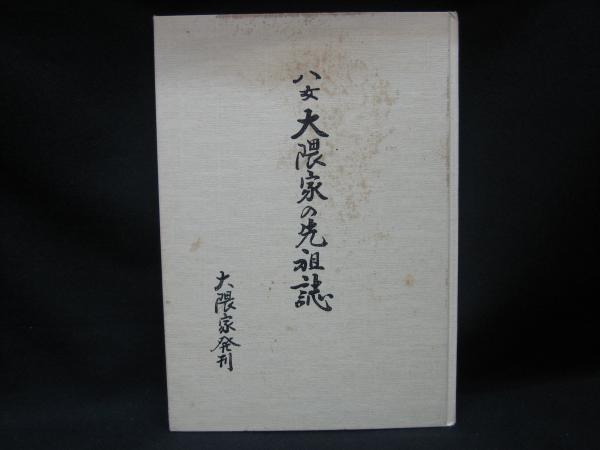 八女 大隈家の先祖誌
大隈家発刊